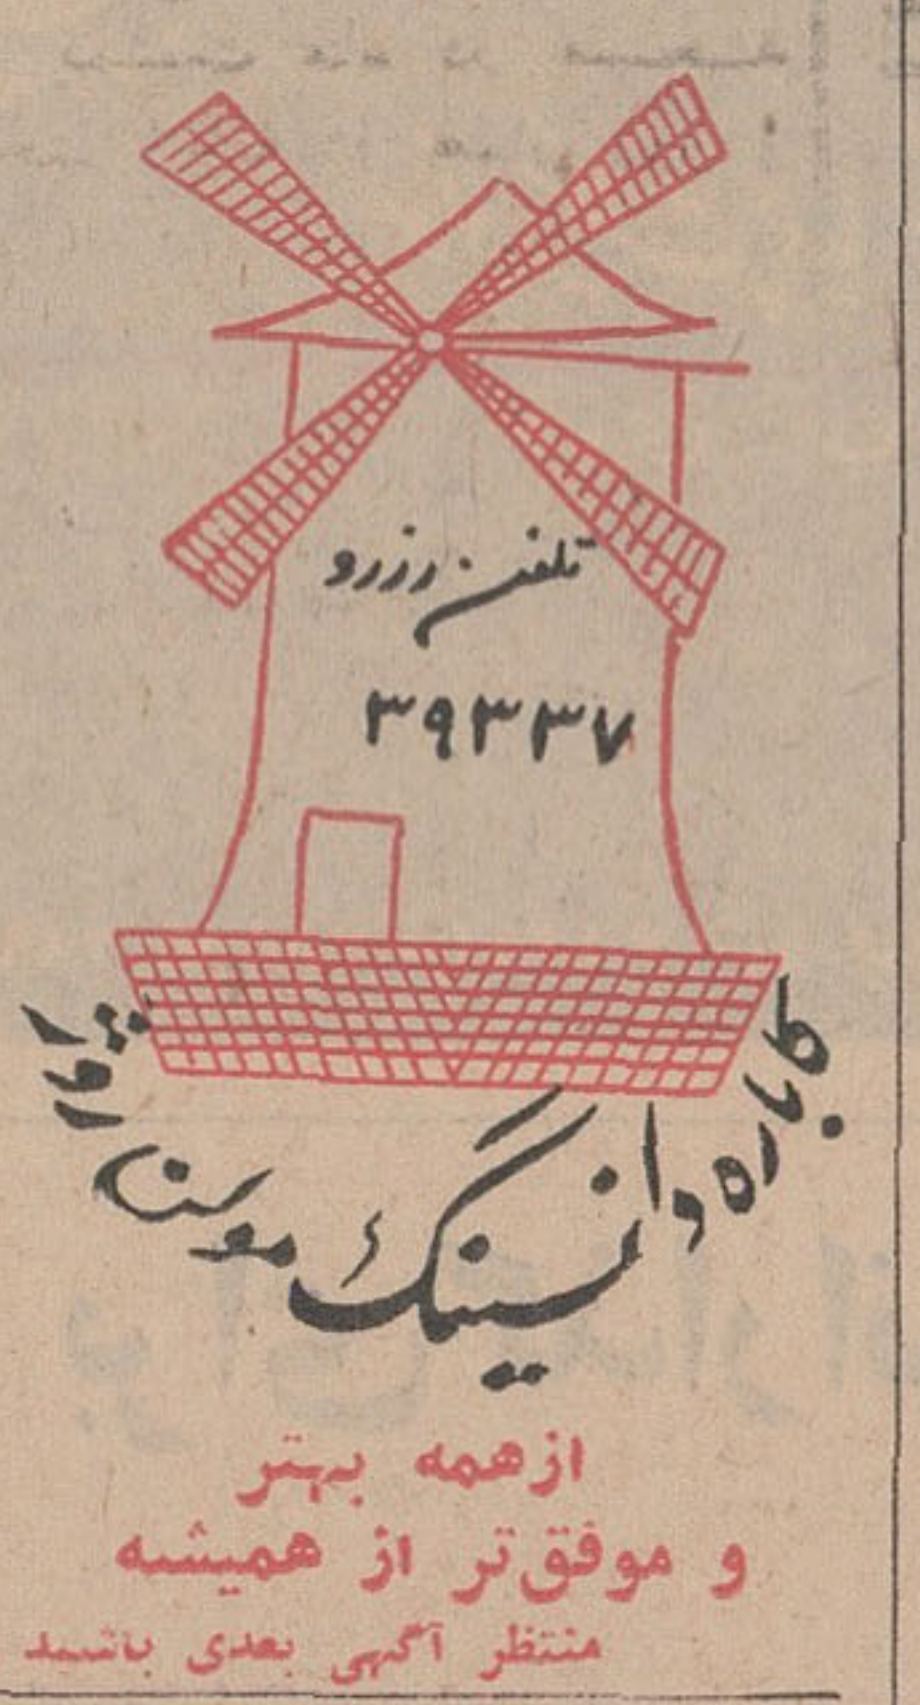 تلفن رزرو
۳۹۳۳۷
کاباره دانسینگ مولن روژ
از همه بهتر
و موفق‌تر از همیشه
منتظر آگهی بعدی باشید